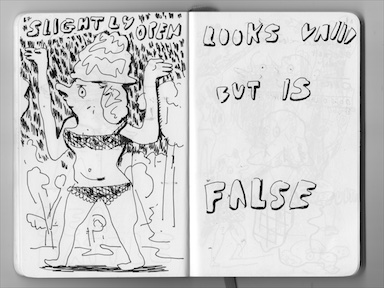 SLIGHTLY OPEN
LOOKS VALID
BUT IS
FALSE